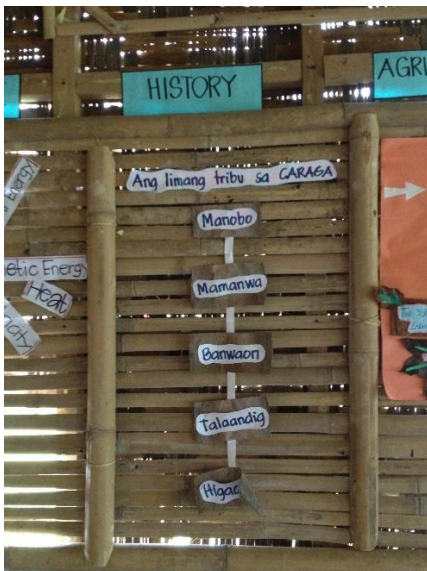 HISTORY
AGRI
Ang limang tribu sa CARAGA
Manobo
Mamanwa
Banwaon
Talaandig
Higao
Energy
etic Energy
Heat
icity